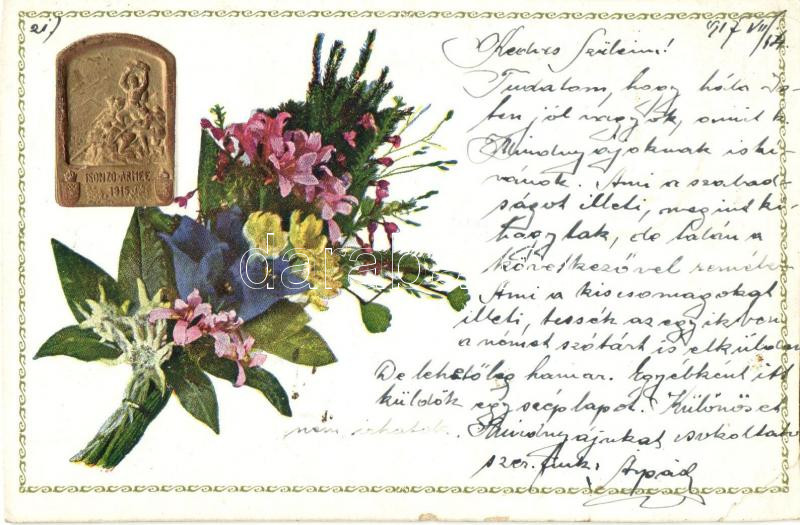 21)
917 VII/14
Kedves Szüleim!
Tudatom, hogy hála Is-
ten jól vagyok, amit
Mindnyájoknak is ki-
vánok. Ami a szabad-
ságot illeti, megint ki-
hagytak, de talán a
következővel remélem
Ami a kiscsomagokat
illeti, tessék az egyikben
a német szótárt is elküldeni
De lehetőleg hamar. Egyebként itt
küldök egy szép lapot. Különöset
nem írhatok. Mindnyájukat csókoltatom
szer. fiuk: Árpád
ISONZO-ARMEE
1915
darab